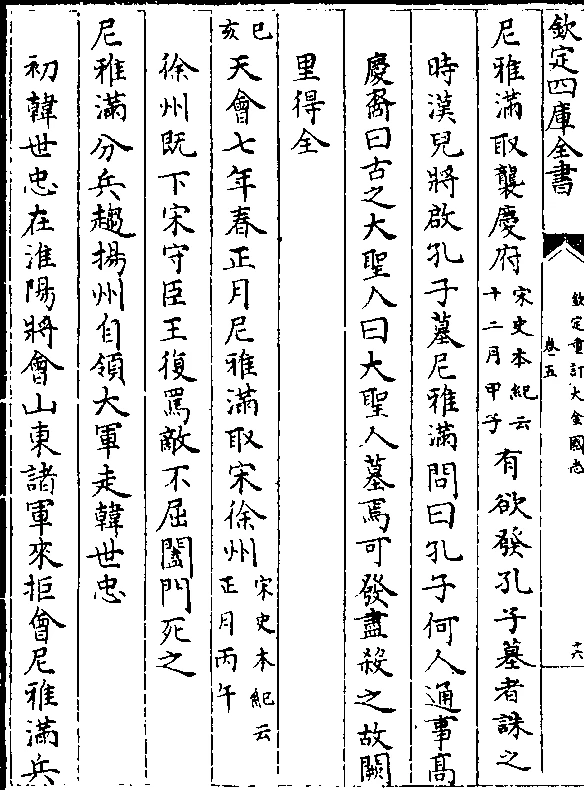 欽定四庫全書
欽定重訂大金國志
卷五
十六
尼雅滿取襲慶府宋史本紀云十二月甲子有欲發孔子墓者誅之
時漢兒將啟孔子墓尼雅滿問曰孔子何人通事高
慶裔曰古之大聖人曰大聖人墓焉可發盡殺之故闕
里得全
己亥天會七年春正月尼雅滿取宋徐州宋史本紀云正月丙午
徐州既下宋守臣王復罵敵不屈闔門死之
尼雅滿分兵趨揚州自領大軍走韓世忠
初韓世忠在淮陽將會山東諸軍來拒會尼雅滿兵